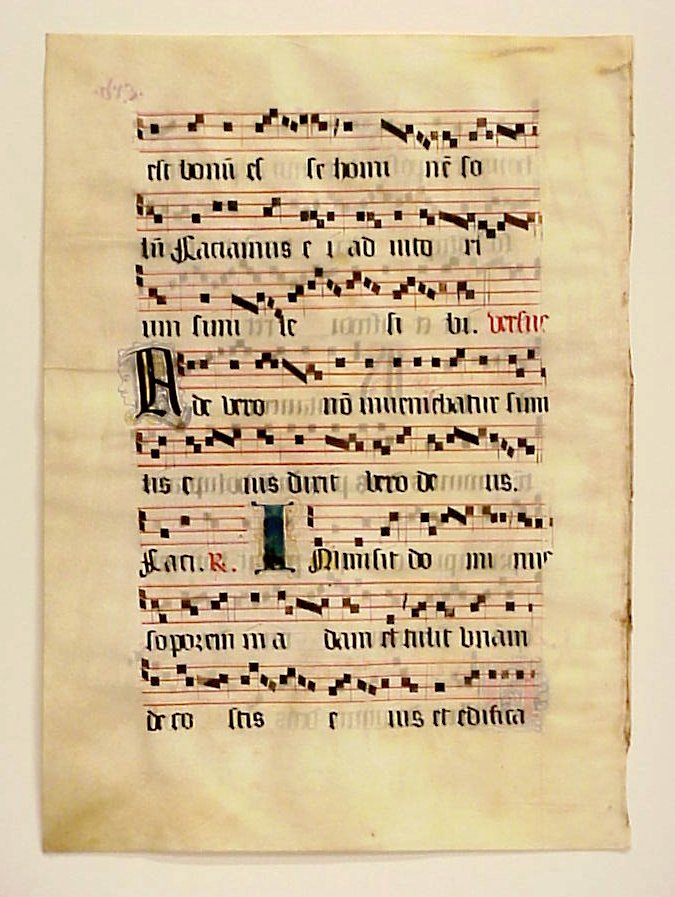 est bonū es se homi nē so
lū Faciamus e i ad iuto ri
um simi le si bi. versus
Ade vero nō inueniebatur simi
lis e ius dixit vero de us.
Faci. R. INmisit do mi nus
soporem in a dam et tulit vnam
de co stis e ius et edifica